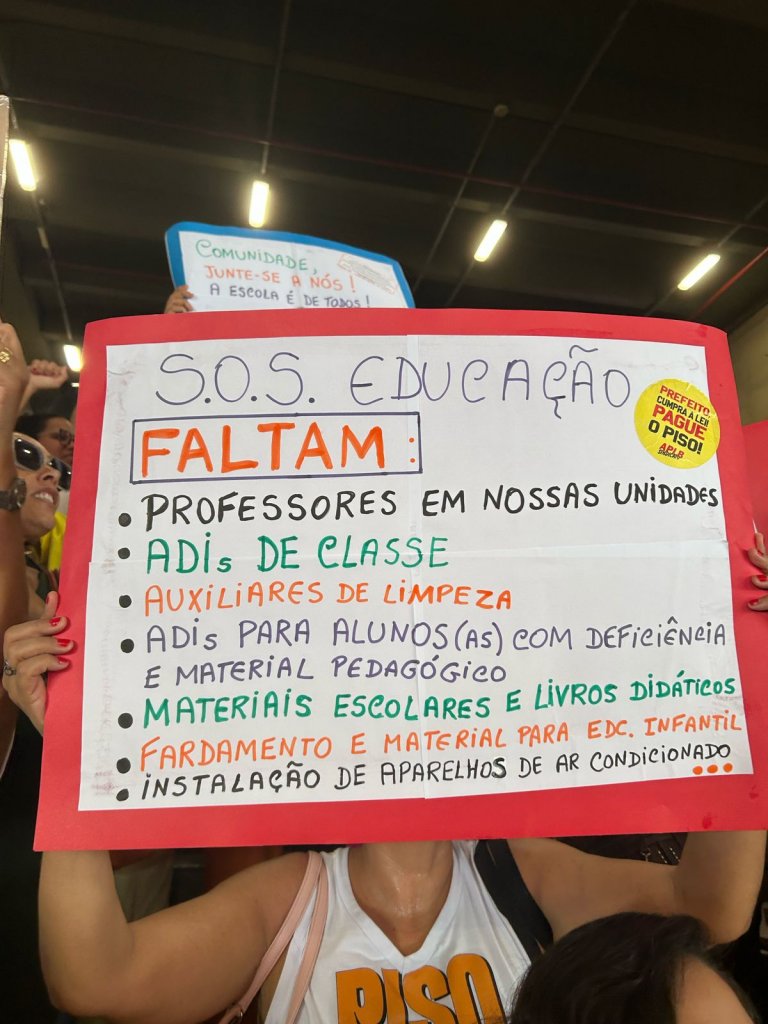 COMUNIDADE,
JUNTE-SE A NÓS!
A ESCOLA É DE TODOS!
S.O.S. EDUCAÇÃO
PREFEITO,
CUMPRA A LEI!
PAGUE
O PISO!
APLB
SINDICATO
FALTAM:
• PROFESSORES EM NOSSAS UNIDADES
• ADIs DE CLASSE
• AUXILIARES DE LIMPEZA
• ADIs PARA ALUNOS(AS) COM DEFICIÊNCIA
E MATERIAL PEDAGÓGICO
• MATERIAIS ESCOLARES E LIVROS DIDÁTICOS
• FARDAMENTO E MATERIAL PARA EDC. INFANTIL
• INSTALAÇÃO DE APARELHOS DE AR CONDICIONADO...
PISO